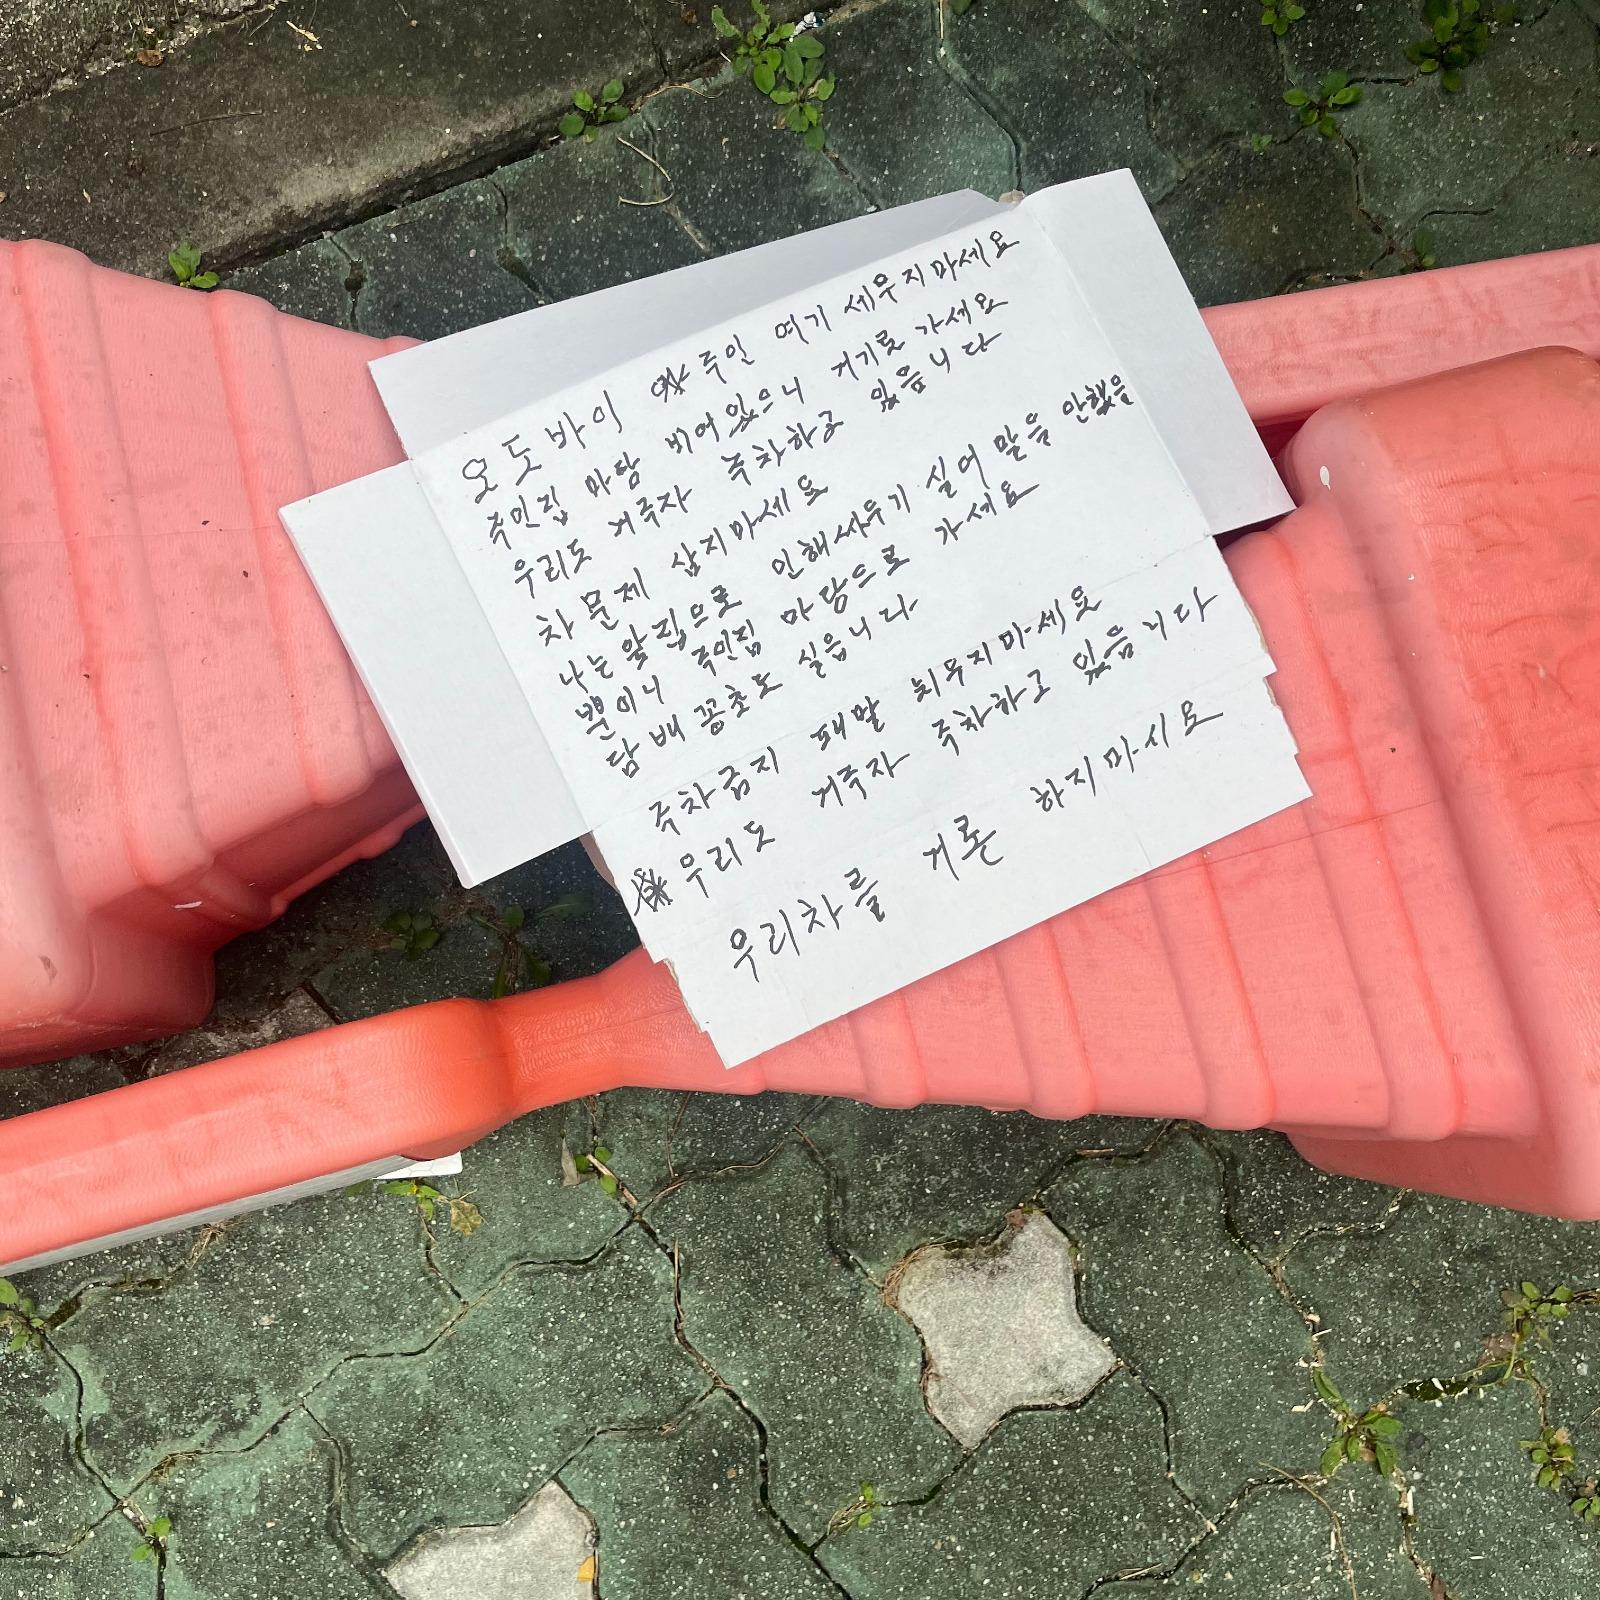 오도바이 주인 여기 세우지마세요
주인집 마당 비어있으니 거기로 가세요
우리도 거주자 주차하고 있음니다
차문제 삼지마세요
나는 앞집으로 인해싸우기 실어 말을 안했을
뿐이니 주인집 마당으로 가세요
담배꽁초도 실음니다
주차금지 패말 치우지마세요
우리도 거주자 주차하고 있음니다
우리차를 거론 하지마시요